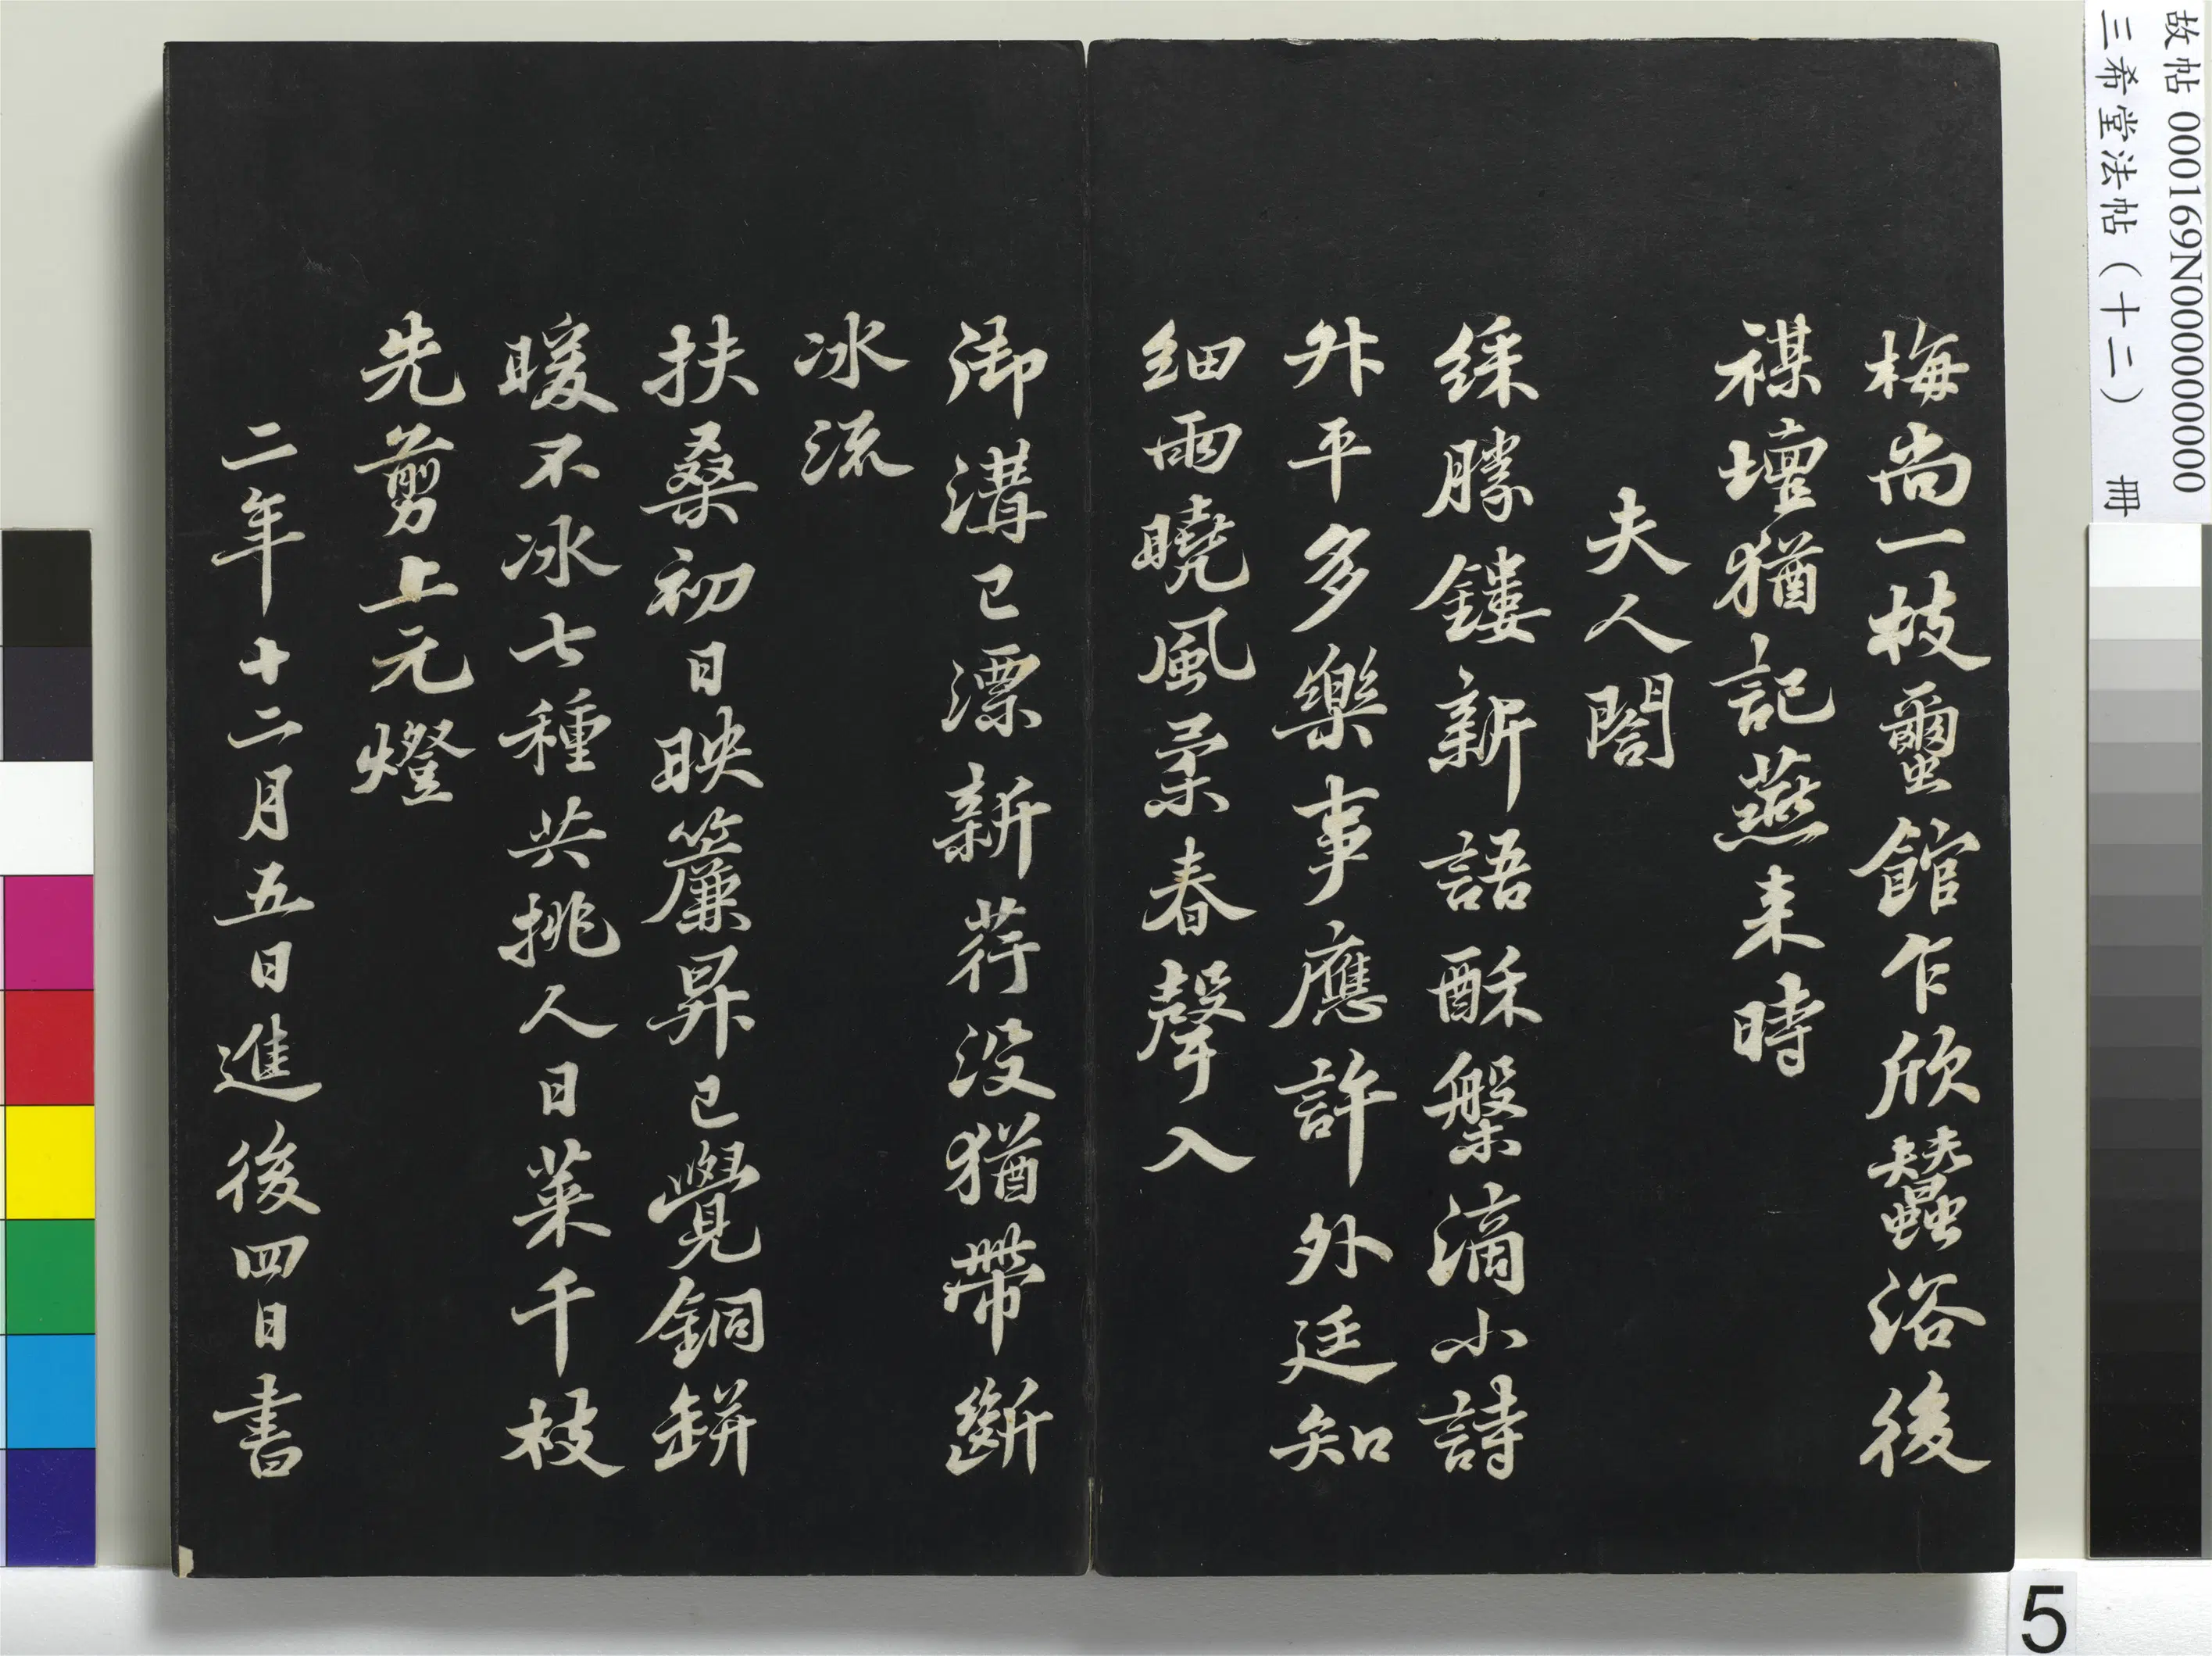 故帖 000169N000000000
三希堂法帖（十二） 冊
梅尚一枝蠒館乍欣蠶浴後
禖壇猶記燕来時
夫人閤
綵勝鏤新語酥槃滴小詩
升平多樂事應許外廷知
细雨曉風柔春聲入
御溝已漂新荇没猶帶斷
冰流
扶桑初日映簾昇已覺銅缾
暖不冰七種共挑人日菜千枝
先剪上元燈
二年十二月五日進後四日書
5